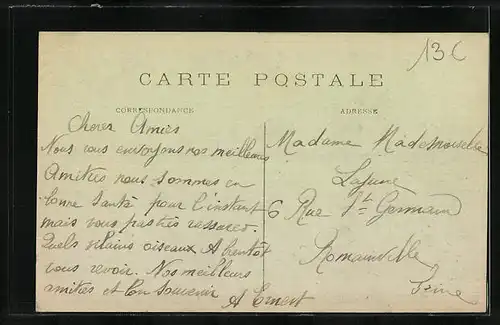 13 C
CARTE POSTALE
CORRESPONDANCE
ADRESSE
Cheres Amies
Nous vous envoyons nos meilleures
Amitiés nous sommes en
bonne Santé pour l'instant
mais vous pas très rassurer.
Quels vilains oiseaux A bientôt
vous revoir. Nos meilleurs
amities et bon souvenir
A Ernest
Madame Mademoiselle
6 Rue St Germain
Romainville
Seine